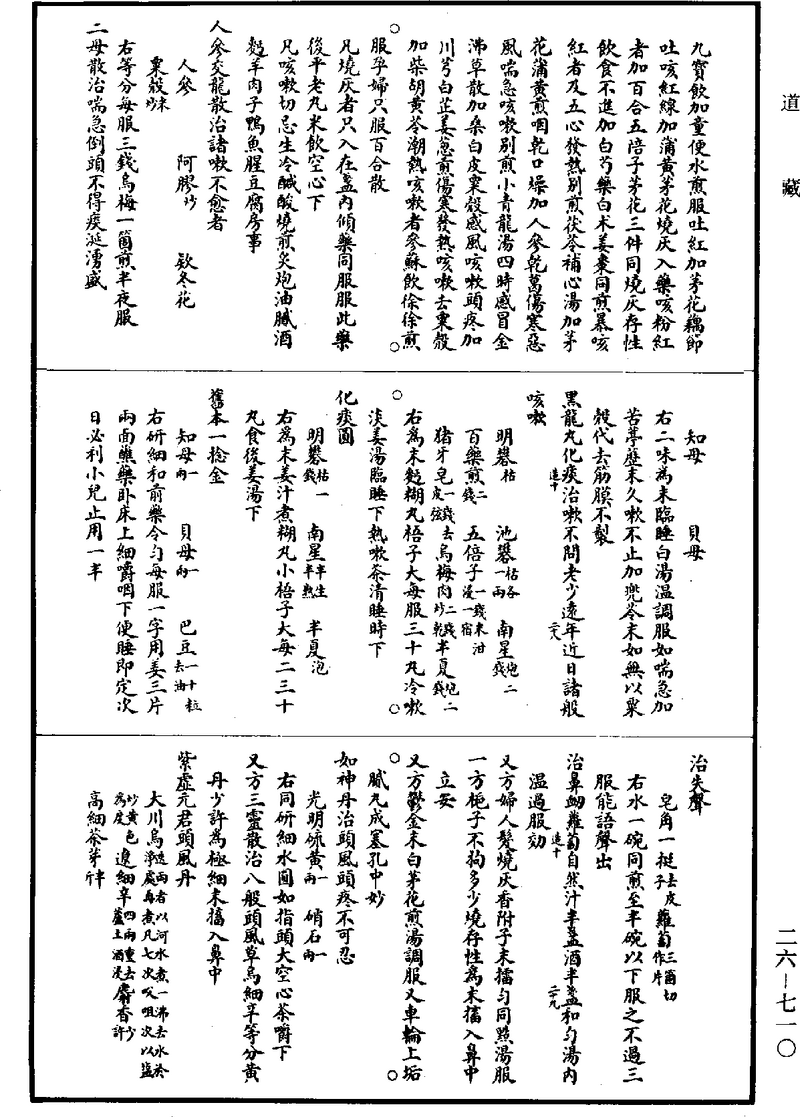 道藏
九寶飲加童便水煎服吐紅加茅花藕節
吐咳紅線加蒲黃茅花燒灰入藥咳粉紅
者加百合五陪子茅花三件同燒灰存性
飲食不進加白芍藥白朮姜棗同煎暴咳
紅者及五心發熱別煎茯苓補心湯加茅
花蒲黃煎咽乾口燥加人參乾葛傷寒惡
風喘急咳嗽別煎小青龍湯四時感冒金
沸草散加桑白皮粟殼感風咳嗽頭疼加
川芎白芷姜葱煎傷寒發熱咳嗽去粟殼
加柴胡黃芩潮熱咳嗽者參蘇飲徐徐煎
服孕婦只服百合散
凡燒灰者只入在盞內傾藥同服服此藥
後平老丸米飲空心下
凡咳嗽切忌生冷鹹酸燒煎炙炮油膩酒
麪羊肉子鴨魚腥豆腐房事
人參交龍散治諸嗽不愈者
人參 阿膠炒 欵冬花
粟殼米炒
右等分每服三錢烏梅一箇煎半夜服
二母散治喘急倒頭不得痰涎湧盛
知母 貝母
右二味為末臨睡白湯溫調服如喘急加
苦葶歷末久嗽不止加兜苓末如無以粟
殼代去筋膜不製
黑龍丸化痰治嗽不問老少遠年近日諸般
咳嗽
明礬枯 池礬枯各一兩 南星炮二錢
百藥煎二錢 五倍子一錢末泔浸一宿
猪牙皂一錢去皮弦 烏梅肉二錢炒乾 半夏炮二錢
右為末麪糊丸梧子大每服三十丸冷嗽
淡姜湯臨睡下熱嗽茶清睡時下
化痰圓
明礬枯一錢 南星半生半熟 半夏泡
右為末姜汁煮糊丸小梧子大每二三十
丸食後姜湯下
舊本一捻金
知母一兩 貝母一兩 巴豆一十粒去油
右研細和前藥令勻每服一字用姜三片
兩面蘸藥卧床上細嚼咽下便睡即定次
日必利小兒止用一半
治失聲
皂角一挺去皮子 蘿蔔三箇切作片
右水一碗同煎至半碗以下服之不過三
服能語聲出
治鼻衂蘿蔔自然汁半盞酒半盞和勻湯內
溫過服効
又方婦人髮燒灰香附子末擂勻同點湯服
一方梔子不狗多少燒存性為末擂入鼻中
立安
又方鬱金末白茅花煎湯調服又車輪上垢
膩丸成塞孔中妙
如神丹治頭風頭疼不可忍
光明硫黃一兩 硝石一兩
右同研細水圓如指頭大空心茶嚼下
又方三靈散治八般頭風草烏細辛等分黃
丹少許為極細末擂入鼻中
紫虛元君頭風丹
高細茶芽
二六—七一〇